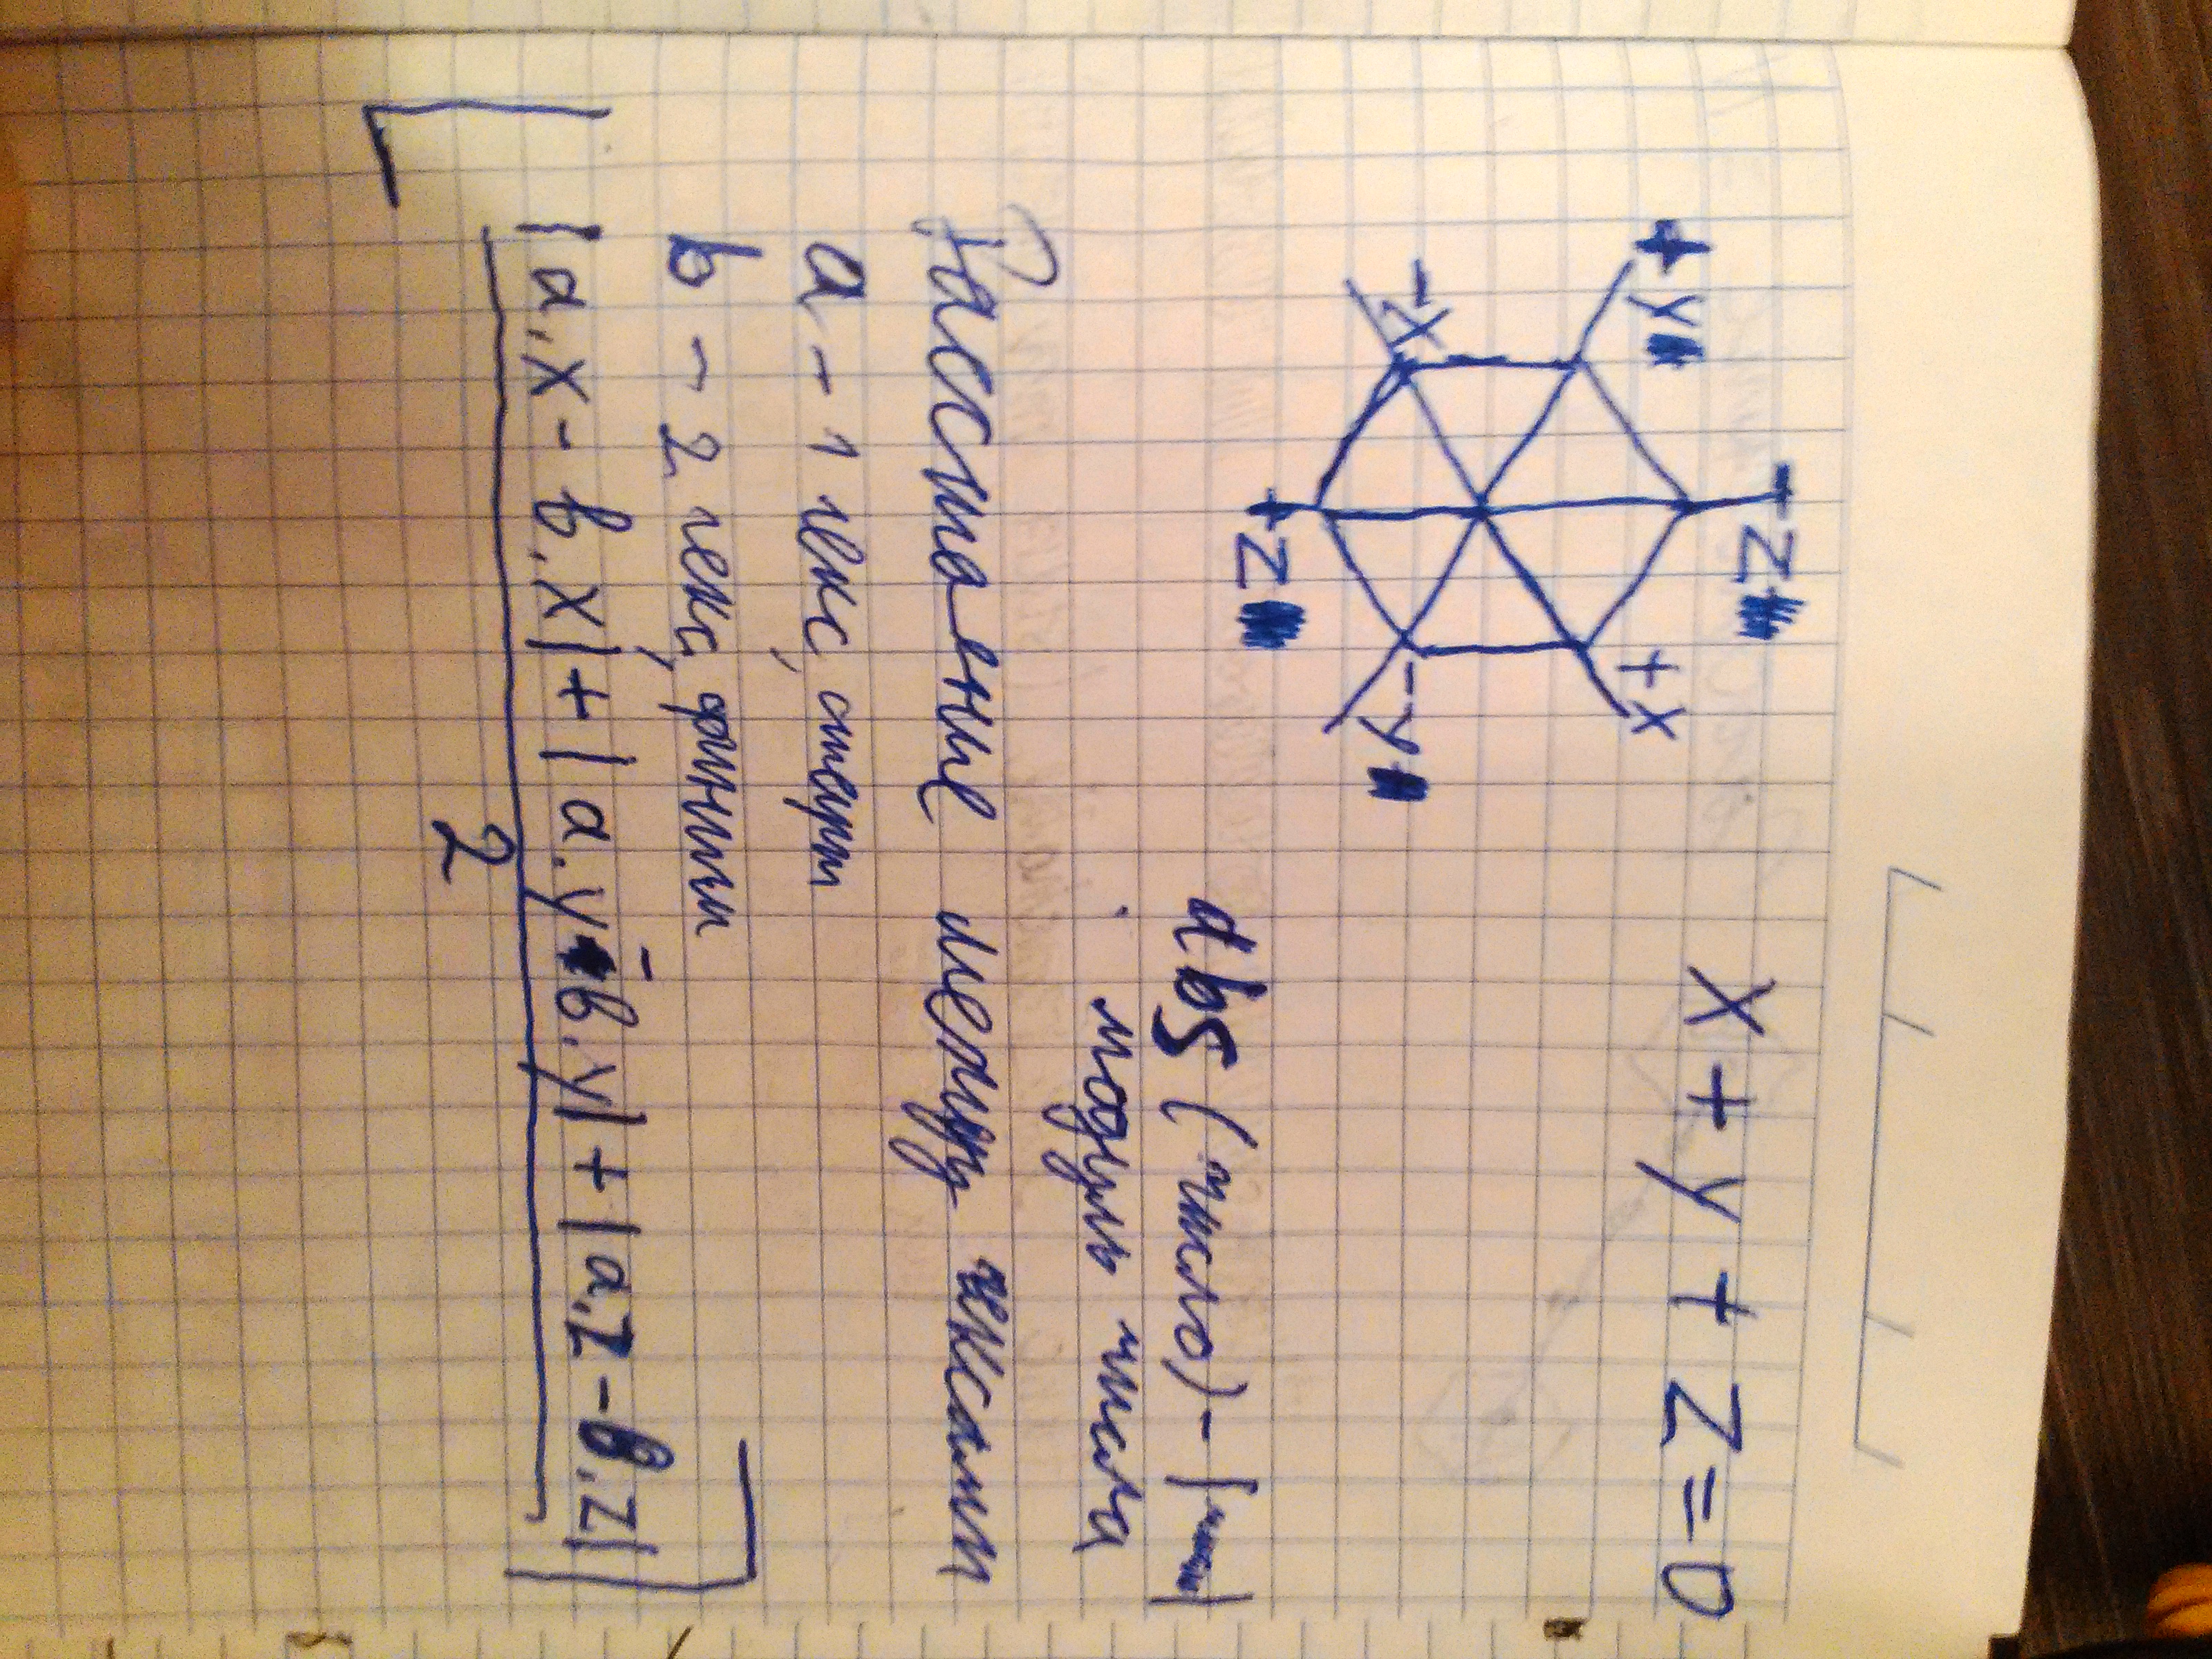 x + y + z = 0
-z
+y
+x
-x
-y
+z
abs (число) - |число|
модуль числа
Расстояние между гексами
a - 1 гекс, старт
b - 2 гекс, финиш
|a.x - b.x| + |a.y - b.y| + |a.z - b.z|
2